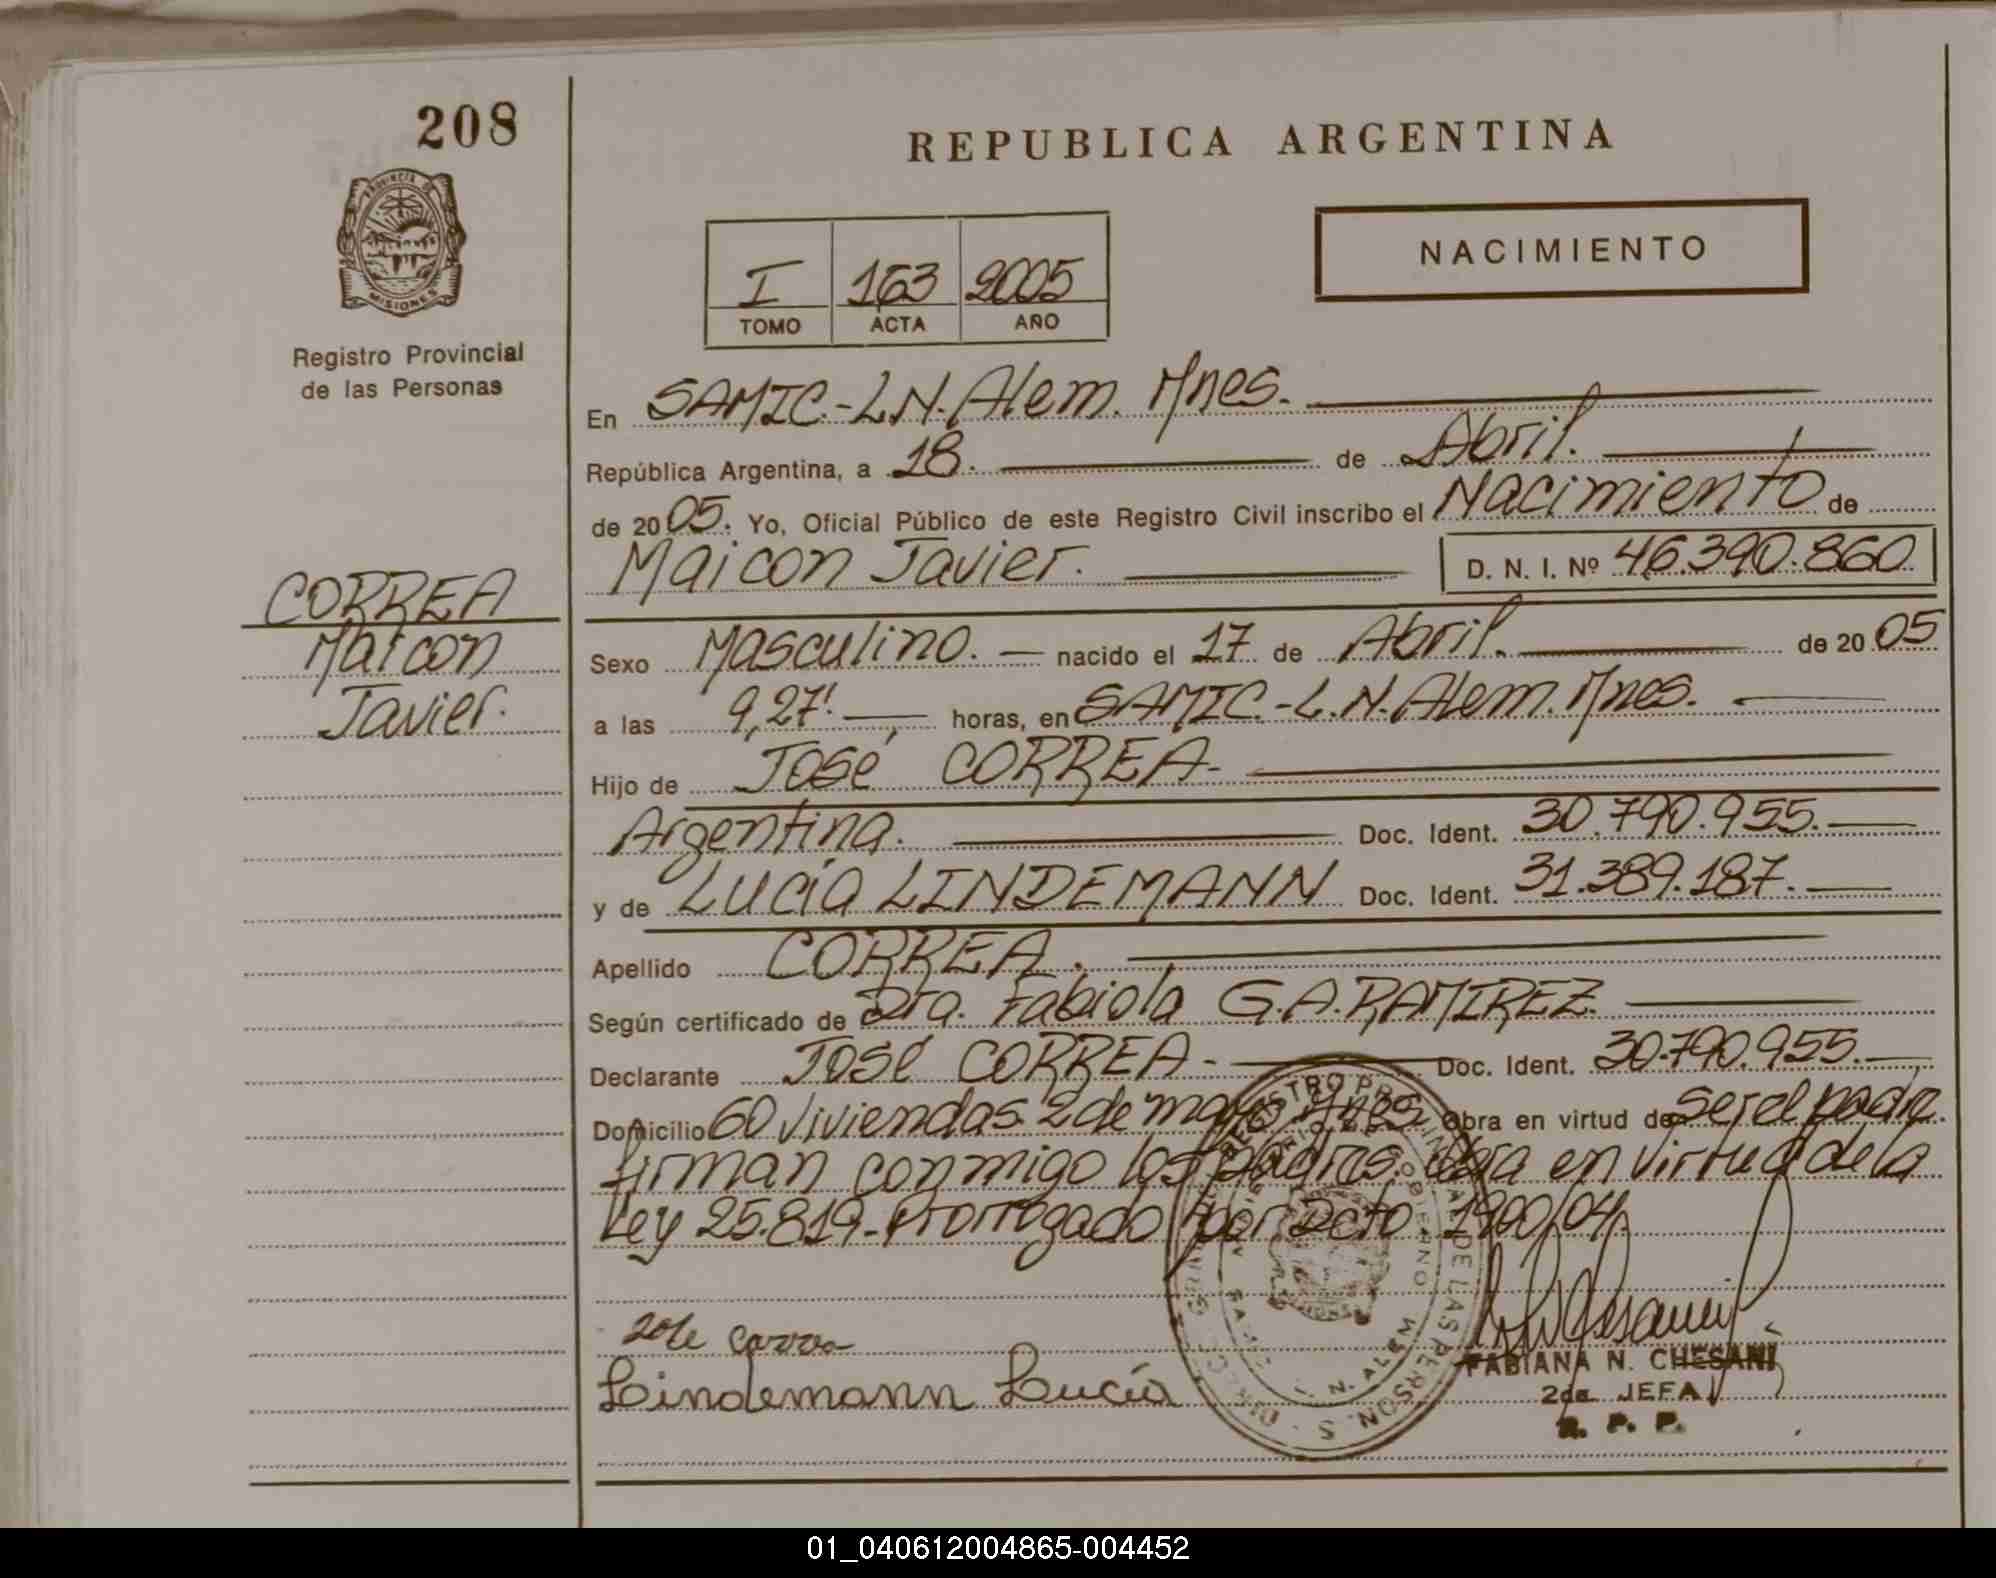 208
REPUBLICA ARGENTINA
PROVINCIA DE
MISIONES
NACIMIENTO
I 163 2005
TOMO ACTA AÑO
Registro Provincial
de las Personas
En SAMIC.-L.N.Alem. Mnes.
República Argentina, a 18. de Abril.
de 2005. Yo, Oficial Público de este Registro Civil inscribo el Nacimiento de
Maicon Javier. D. N. I. Nº 46.390.860
CORREA
Maicon
Javier.
Sexo Masculino. nacido el 17 de Abril. de 2005
a las 9,27'. horas, en SAMIC.-L.N.Alem. Mnes.
Hijo de José CORREA-
Argentina. Doc. Ident. 30.790.955.
y de LUCíA LINDEMANN Doc. Ident. 31.389.187.
Apellido CORREA.
Según certificado de Dra. Fabiola G.A.RAMIREZ.
Declarante José CORREA- Doc. Ident. 30.790.955.
Domicilio 60 Viviendas 2 de mayo Mnes Obra en virtud de ser el padre.
firman conmigo los padres. Obra en virtud de la
Ley 25.819-Prorrogado por Dcto 1900/04.
Lindemann Lucía
FABIANA N. CHESANI
2da JEFA
R. P. P.
01_040612004865-004452